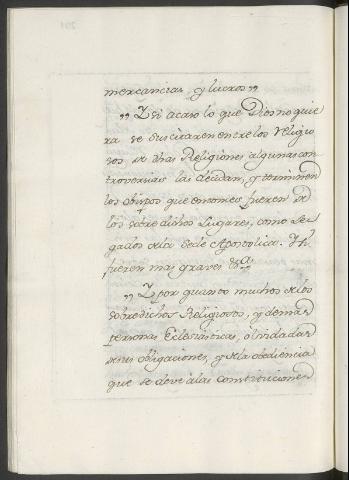 mercancias, y lucros"
" Y si acaso lo que Dios no quie
ra se suscitaren entre los Religio
sos de dhas Religiones algunas con
troversias las decidan, y terminen
los obispos que entonces fueren de
los sobre dichos Lugares, como Le
gados de la Sede Apostolica. Y si
fueren mas graves &a
" Y por quanto muchos de los
sobredichos Religiosos, y demas
personas Eclesiasticas, olvidadas
de sus obligaciones, y de la obediencia
que se deve á las constituciones